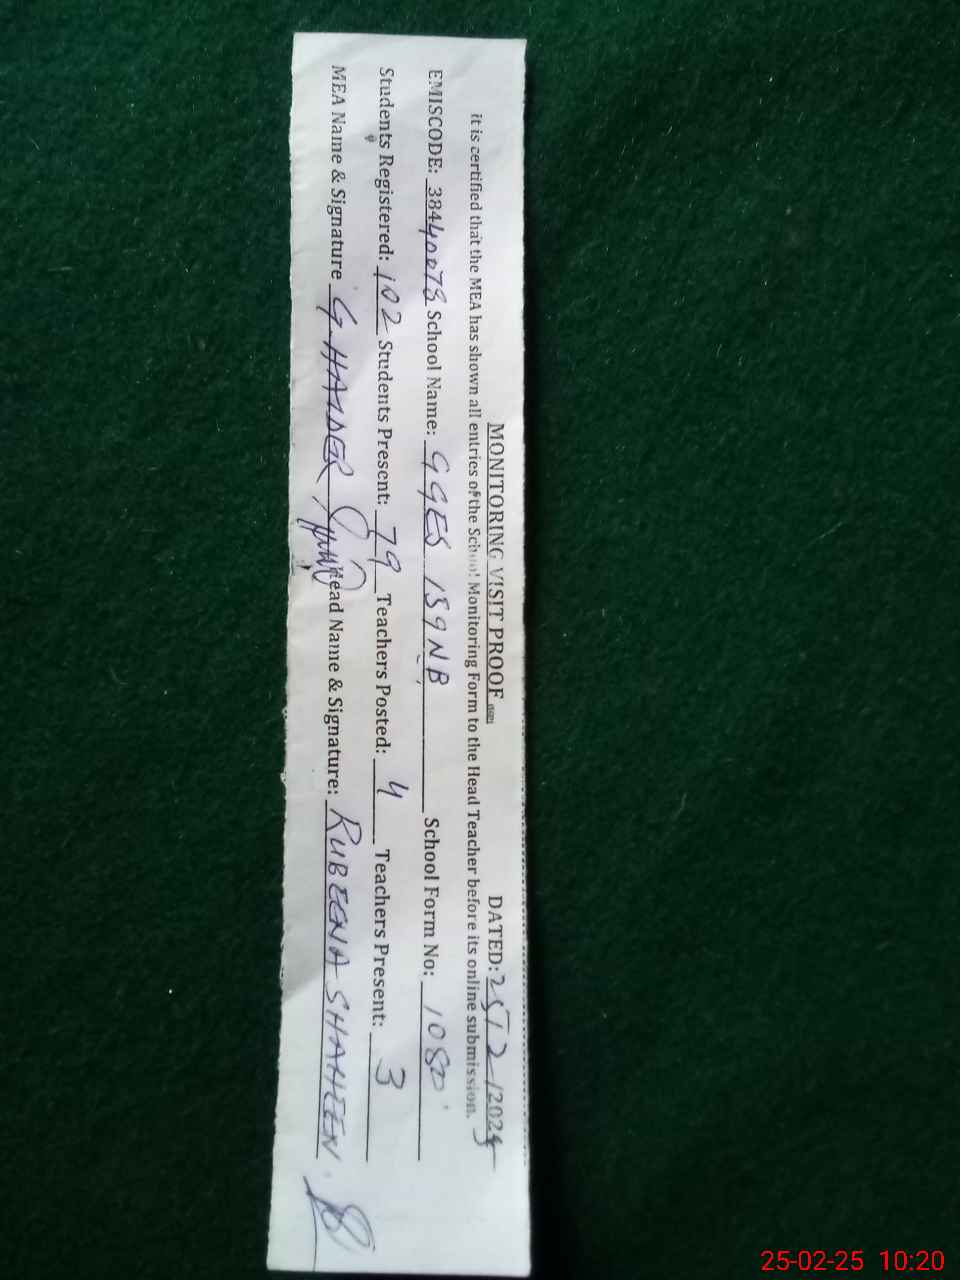 MONITORING VISIT PROOF DATED: 25/2/2025
it is certified that the MEA has shown all entries of the School Monitoring Form to the Head Teacher before its online submission.
EMISCODE: 38440078 School Name: GGES 159NB School Form No: 1080
Students Registered: 102 Students Present: 79 Teachers Posted: 4 Teachers Present: 3
MEA Name & Signature G. HAIDER Head Name & Signature: RUBEENA SHAHEEN
25-02-25 10:20